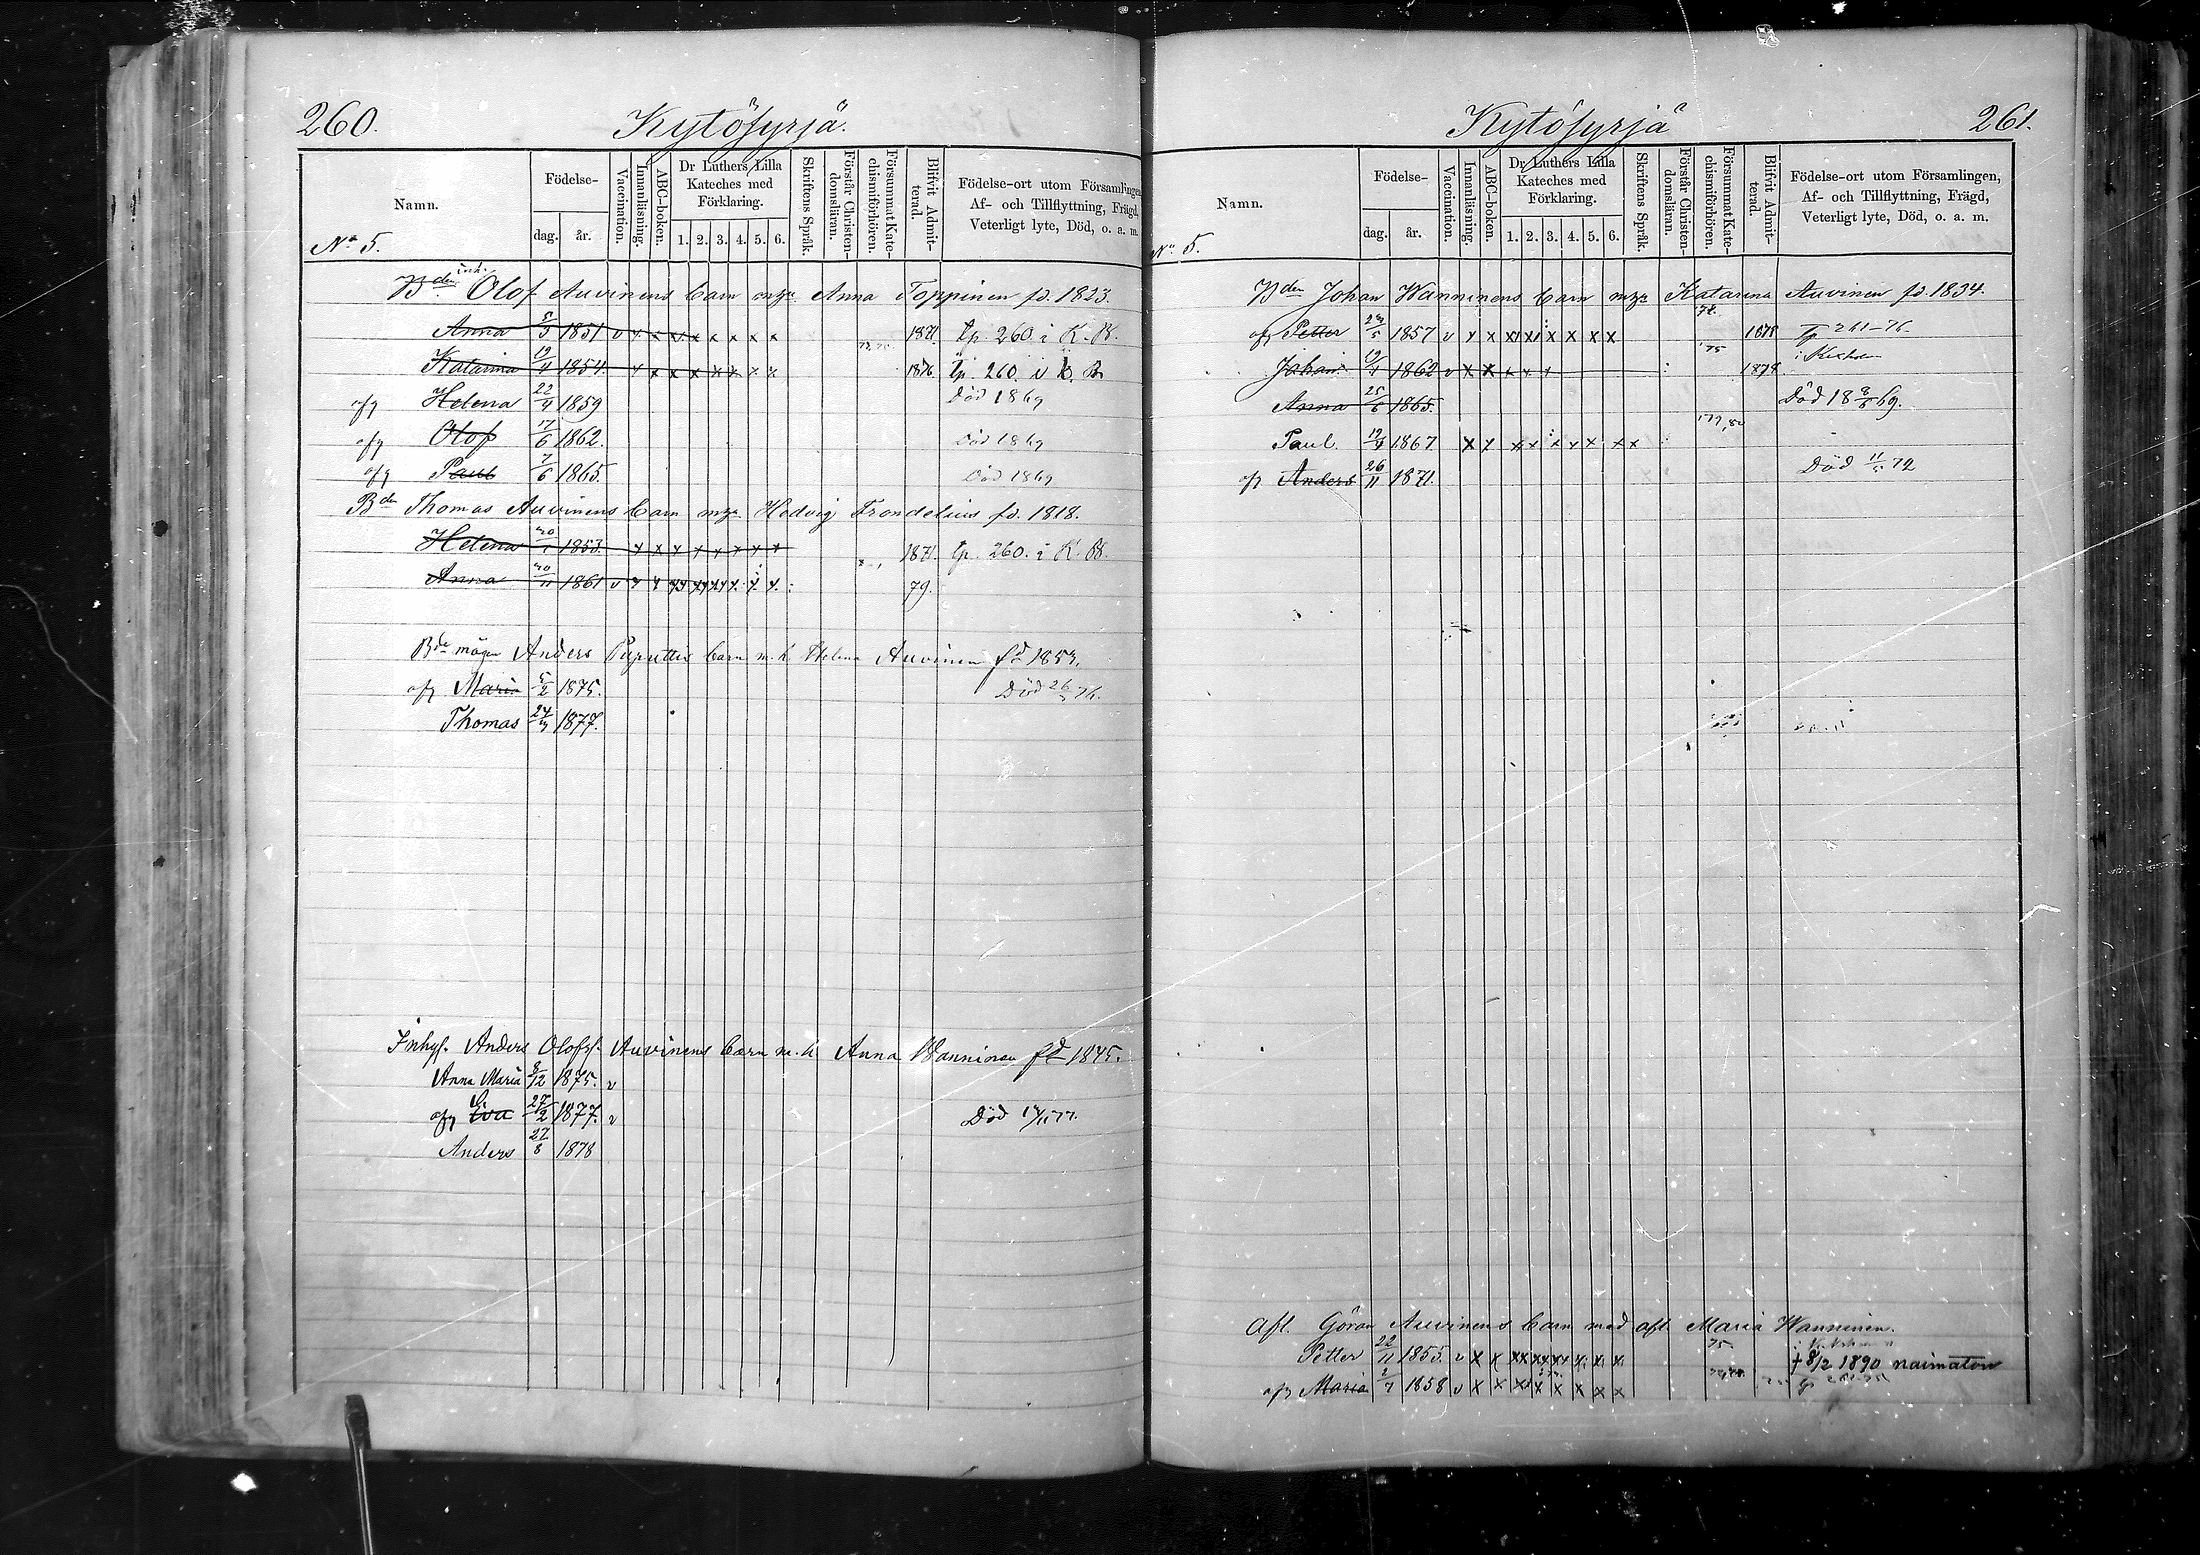 260. Kytösyrjä.
Namn. Födelse- dag. år. Vaccination. Innanläsning. ABC-boken. Dr Luthers Lilla Kateches med Förklaring. 1. 2. 3. 4. 5. 6. Skriftens Språk. Förstår Christendomsläran. Försummat Katechismiförhören. Blifvit Admitterad. Födelse-ort utom Församlingen, Af- och Tillflyttning, Frägd, Veterligt lyte, Död, o. a. m.
No 5.
Bden inh. Olof Auvinens barn Anna Toppinen fd. 1823.
Anna 5/5 1851 v x x x x x x x x 1871. tp. 260. i K. B.
Katarina 19/4 1854. x x x x x x x x 1876. tp. 260. i K. B.
Helena 22/4 1859 Död 1869
Olof 17/6 1862. Död 1869
Paul 7/6 1865. Död 1869
Bden Thomas Auvinens barn Hedvig Frondelius fd. 1818.
Helena 1853. x x x x x x x x 1871. tp. 260. i K. B.
Anna 1861 v 79.
Bde mågen Anders Puputtis barn m. h. Helena Auvinen fd 1853.
Maria 5/2 1875. Död 26 76.
Thomas 1877.
Inhys. Anders Olofs. Auvinens barn m. h. Anna Wanninen fd 1845.
Anna Maria 8/12 1875. v
Eva 27/2 1877. v Död 77.
Anders 27/8 1878
Kytösyrjä 261.
Namn. Födelse- dag. år. Vaccination. Innanläsning. ABC-boken. Dr Luthers Lilla Kateches med Förklaring. 1. 2. 3. 4. 5. 6. Skriftens Språk. Förstår Christendomsläran. Försummat Katechismiförhören. Blifvit Admitterad. Födelse-ort utom Församlingen, Af- och Tillflyttning, Frägd, Veterligt lyte, Död, o. a. m.
No 5.
Bden Johan Wanninens barn Katarina Auvinen fd. 1834.
Petter 23/5 1857 v x x x x x x x x 1878 Tp 261-76
Johan 1862 v x x x x x 75 1878
Anna 25/6 1865. Död 18 69.
Paul 19/4 1867 x x x x x x x x x
Anders 26/11 1871. Död 72
Afl. Göran Auvinens barn med afl. Maria Wanninen.
Petter 22/11 1855. v x x 75 † 8/2 1890 naimaton
Maria 2/7 1858 v x x x x x x x x